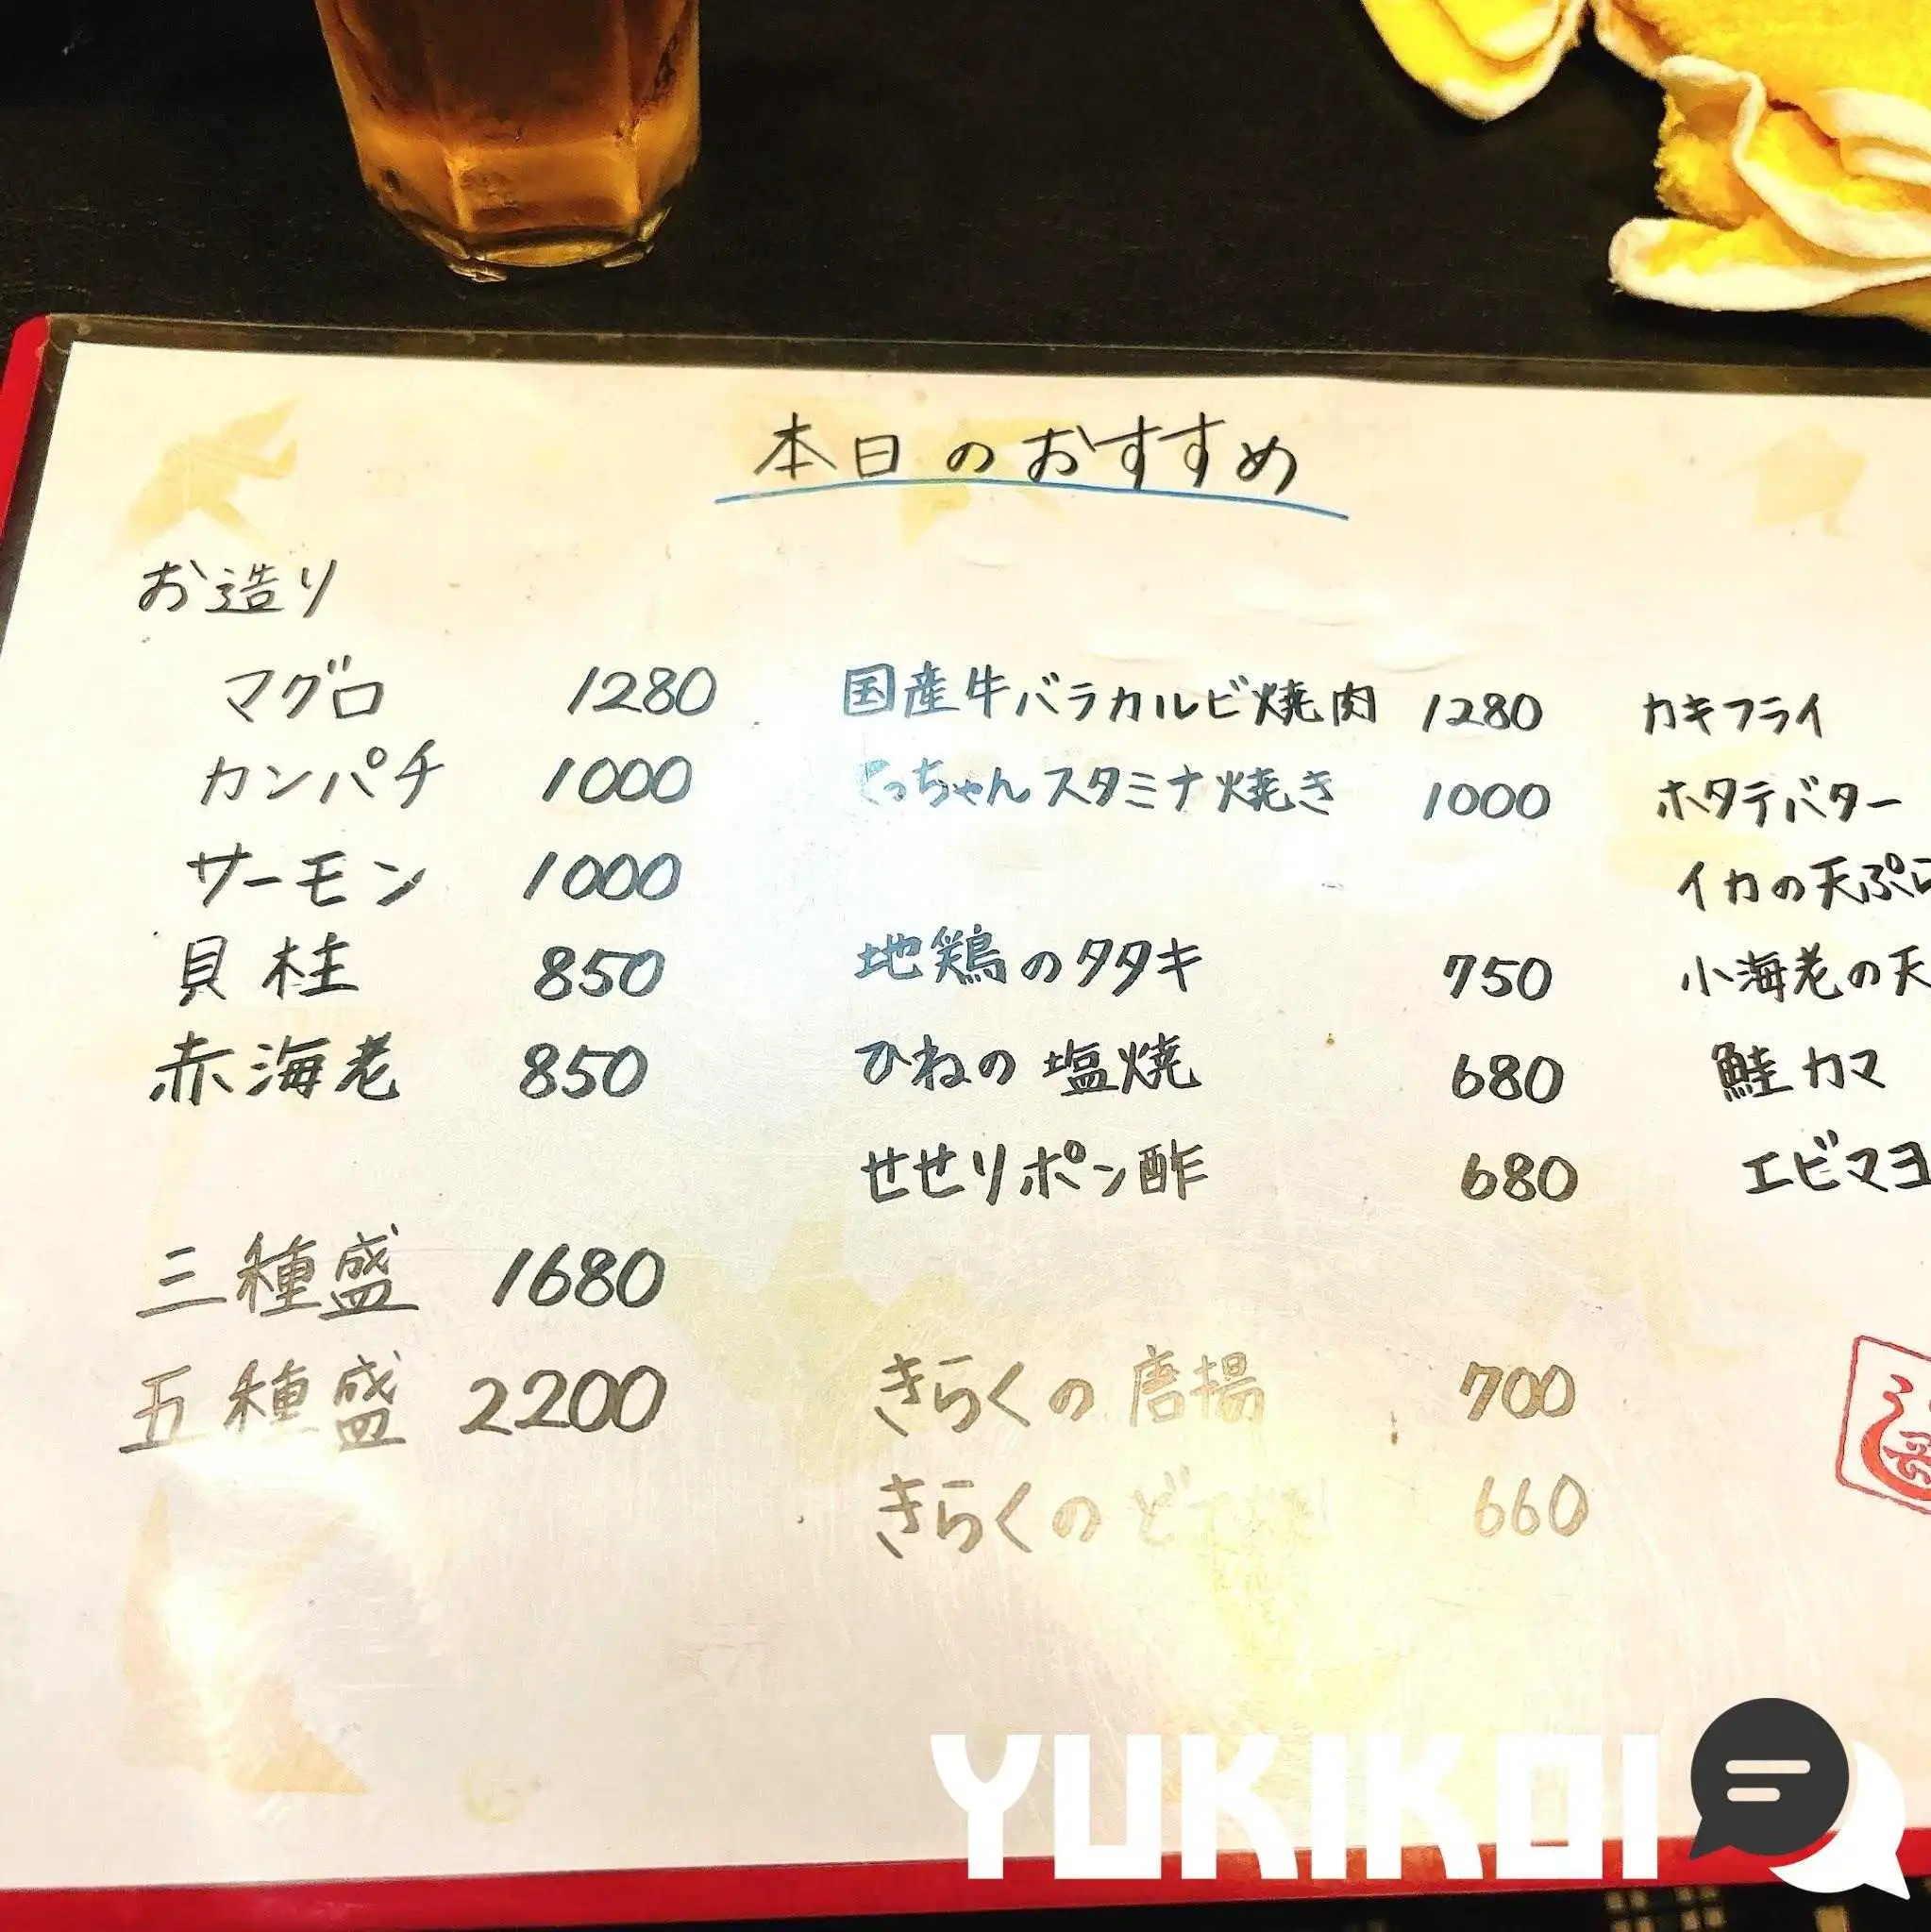 本日のおすすめ
お造り
マグロ 1280
カンパチ 1000
サーモン 1000
貝柱 850
赤海老 850
三種盛 1680
五種盛 2200
国産牛バラカルビ焼肉 1280
スタミナ焼き 1000
地鶏のタタキ 750
ひねの塩焼 680
せせりポン酢 680
きらくの唐揚 700
きらくの 660
カキフライ
ホタテバター
イカの天ぷら
小海老の天
鮭カマ
エビマヨ
YUKIKOI